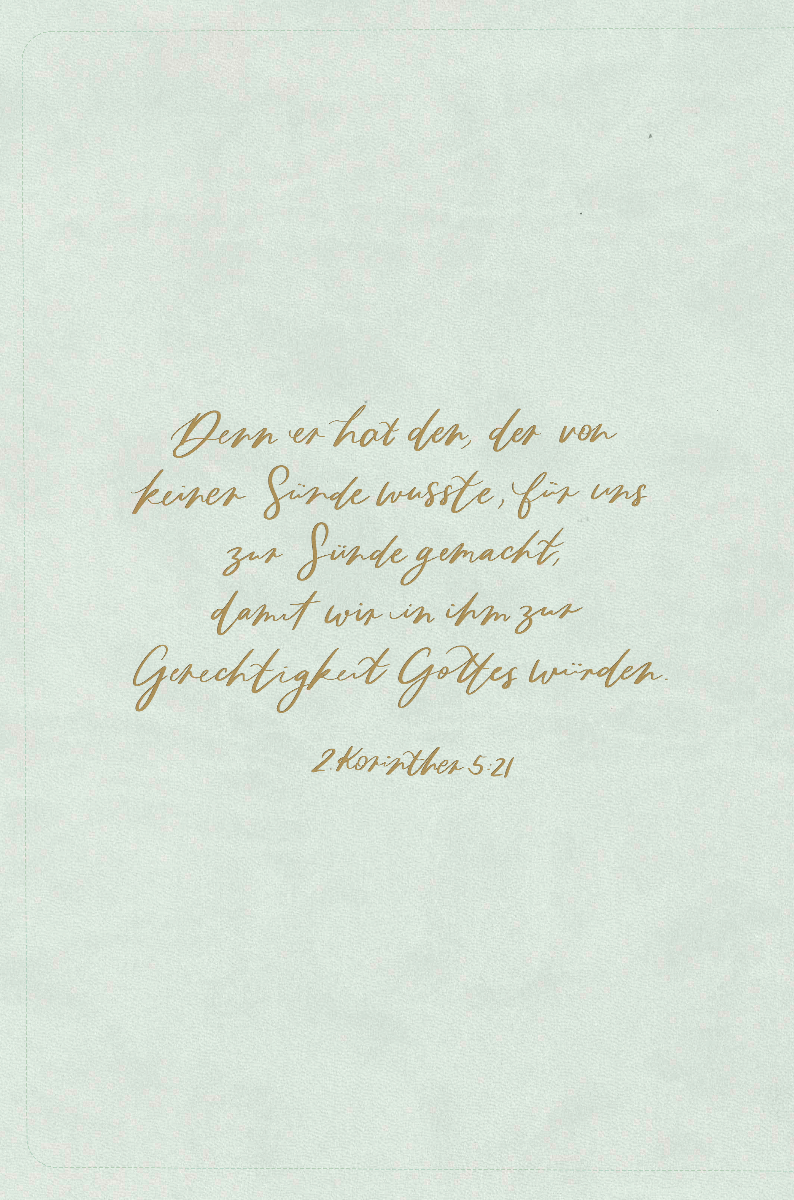 Denn er hat den, der von
keiner Sünde wusste, für uns
zur Sünde gemacht,
damit wir in ihm zur
Gerechtigkeit Gottes würden.
2. Korinther 5:21